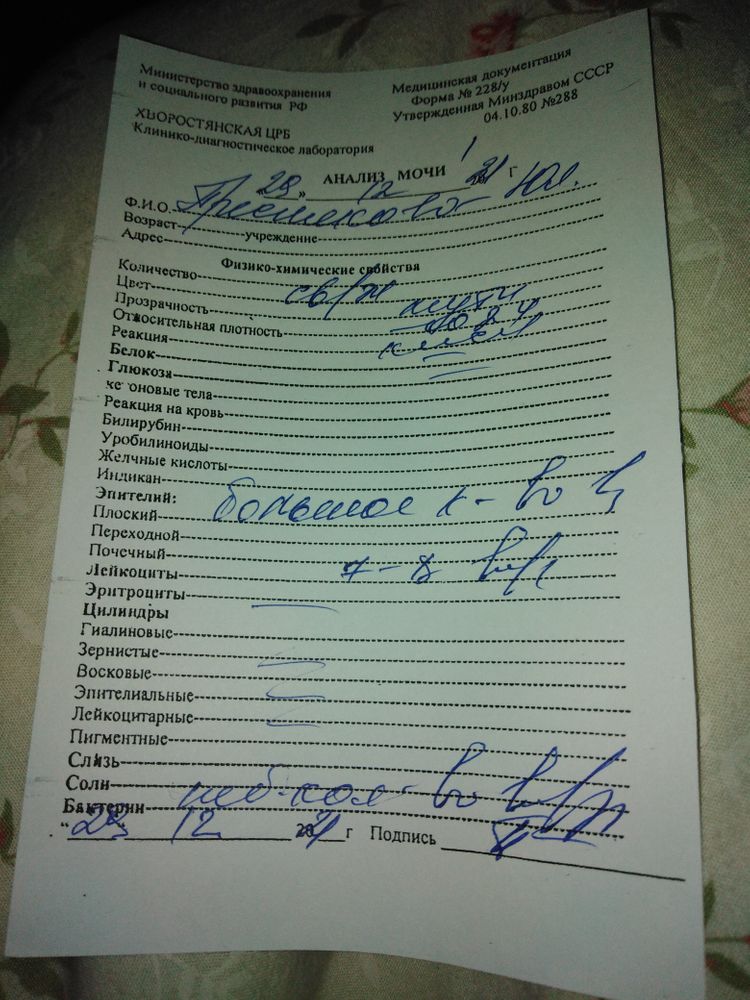 Министерство здравоохранения
и социального развития РФ
Медицинская документация
Форма № 228/у
Утвержденная Минздравом СССР
04.10.80 №288
ХВОРОСТЯНСКАЯ ЦРБ
Клинико-диагностическое лаборатория
АНАЛИЗ МОЧИ
"28" 12 г
Ф.И.О.
Возраст учреждение
Адрес
Физико-химические свойства
Количество
Цвет св/ж
Прозрачность мутн
Относительная плотность
Реакция
Белок —
Глюкоза —
кетоновые тела
Реакция на кровь
Билирубин
Уробилиноиды
Желчные кислоты
Индикан
Эпителий:
Плоский большое к-во
Переходной
Почечный
Лейкоциты 7-8 в п/з
Эритроциты —
Цилиндры
Гиалиновые
Зернистые —
Восковые —
Эпителиальные —
Лейкоцитарные —
Пигментные
Слизь
Соли
Бактерии неб. кол-во в п/з
"28" 12 г Подпись